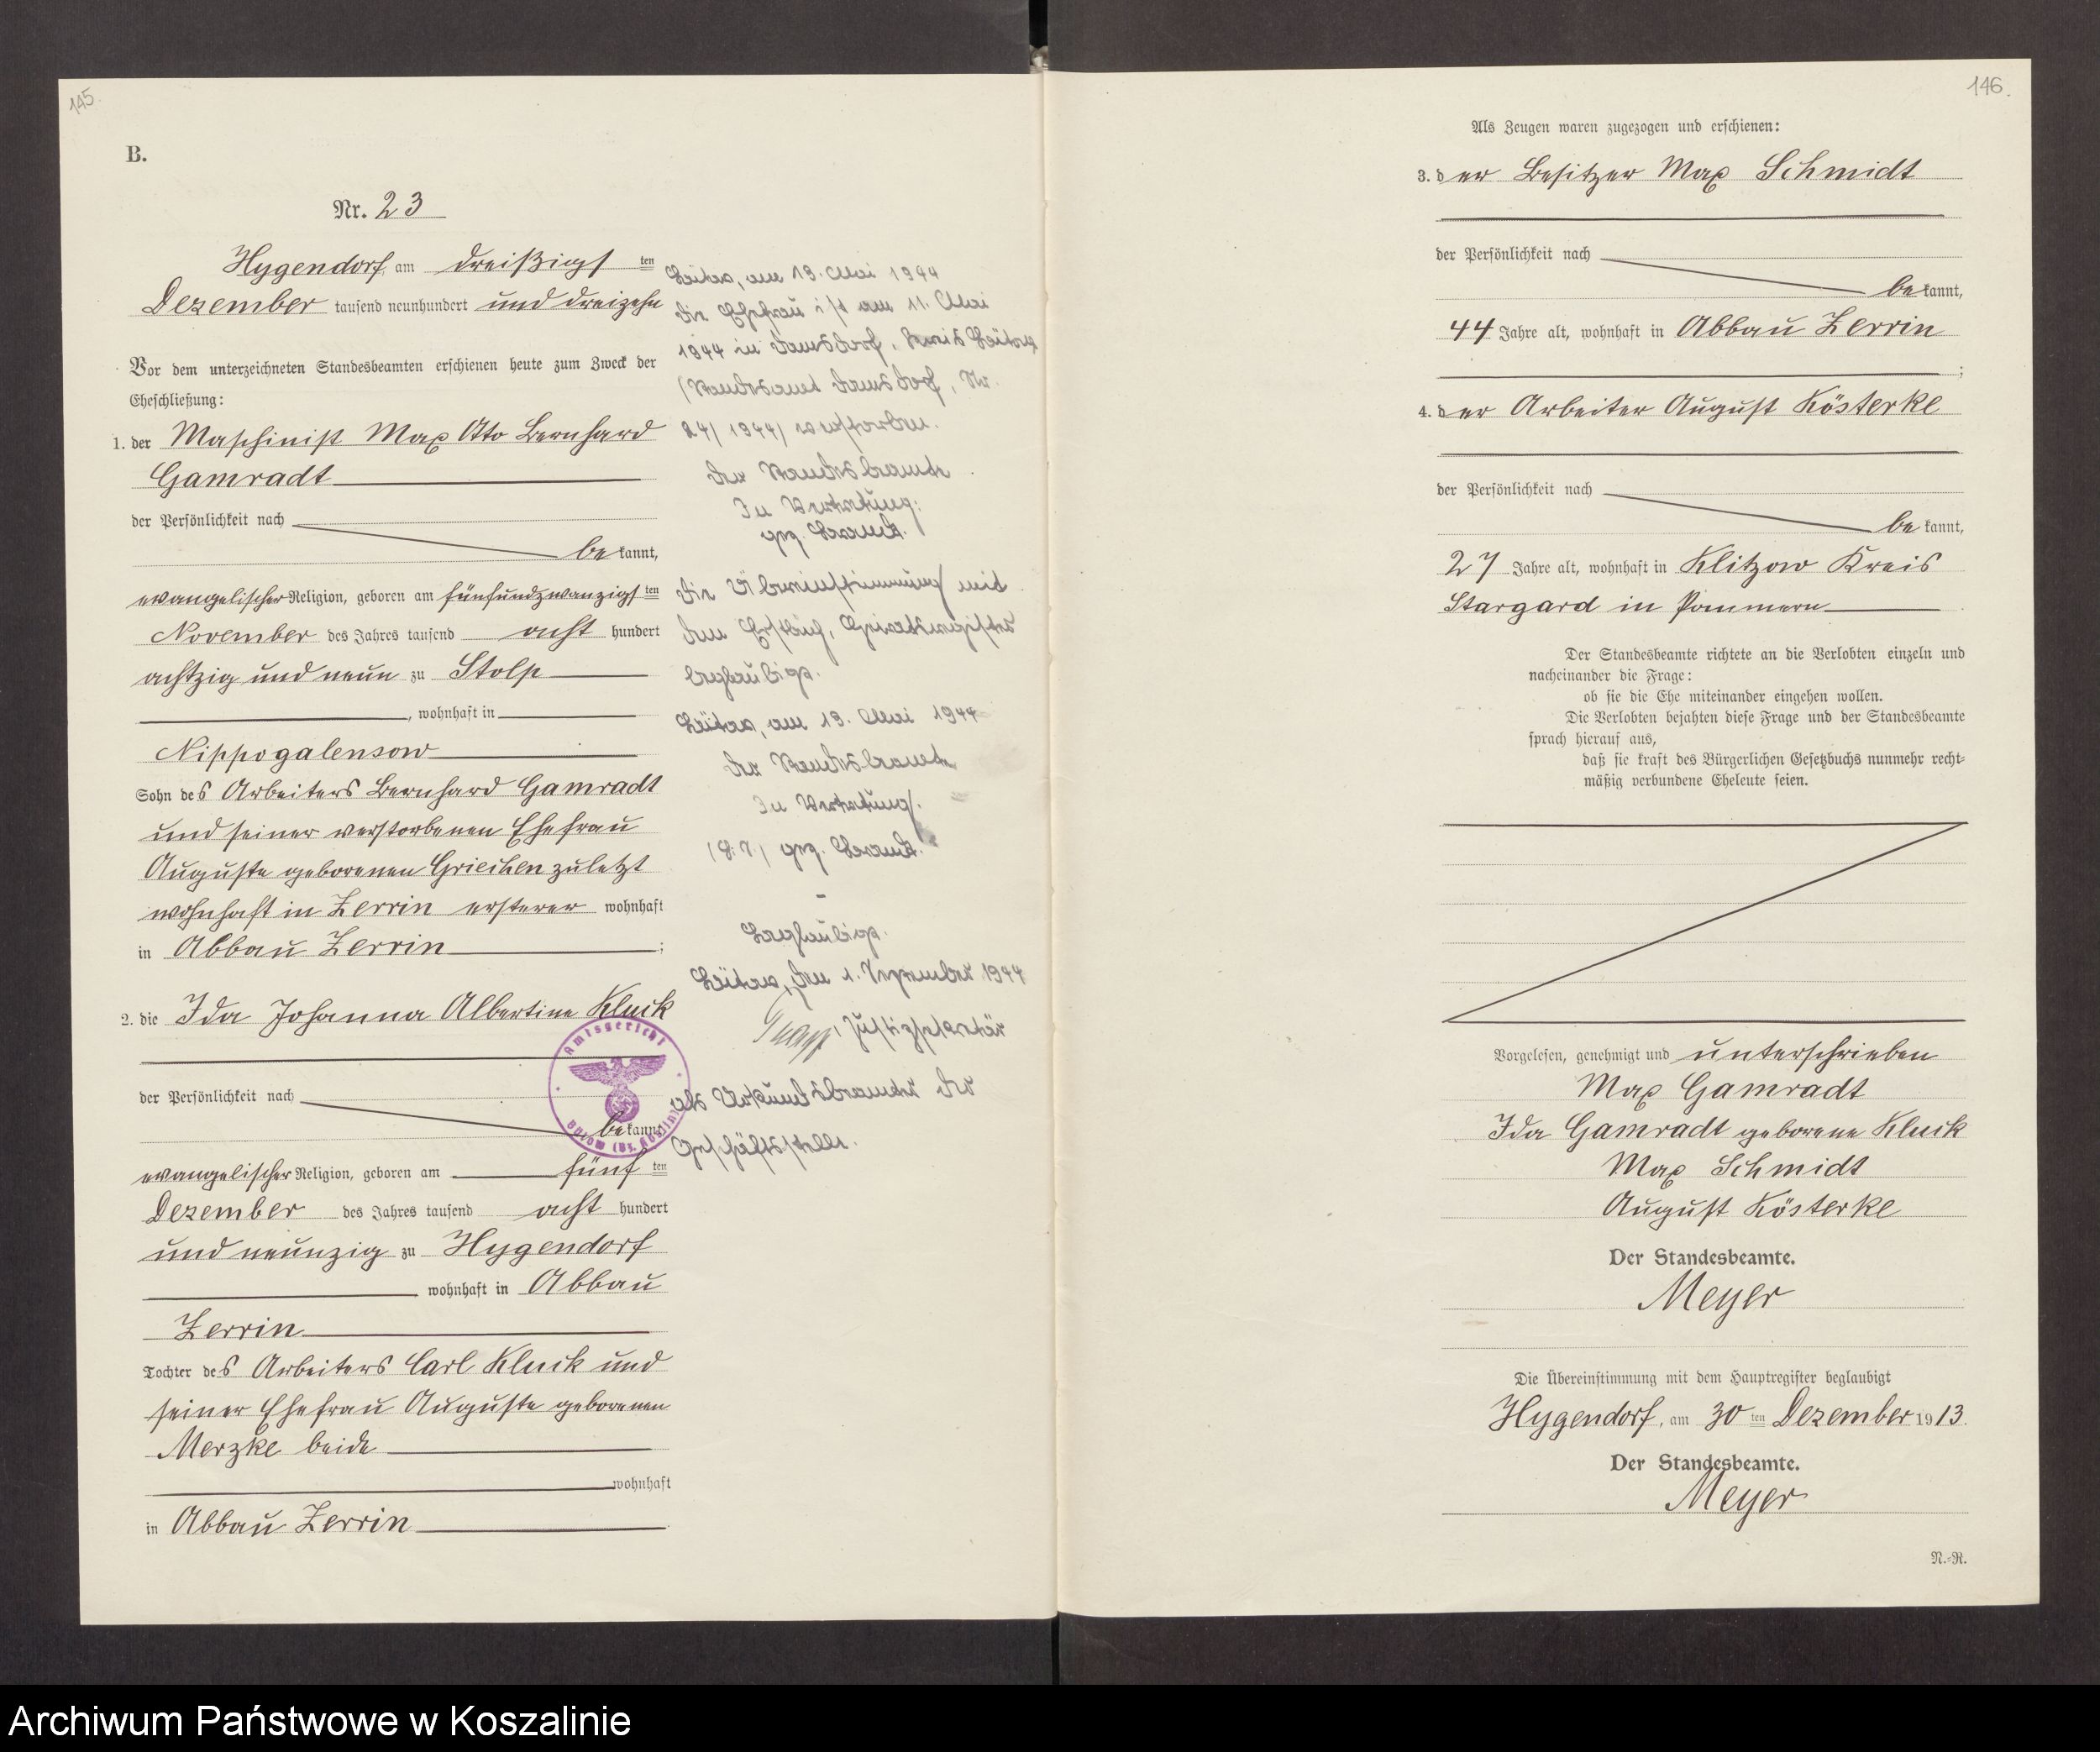 145.
B.
Nr. 23
Hygendorf, am dreißigsten
Dezember tausend neunhundert und dreizehn
Vor dem unterzeichneten Standesbeamten erschienen heute zum Zweck der
Eheschließung:
1. der Maschinist Max Otto Bernhard
Gamradt
der Persönlichkeit nach
bekannt,
evangelischer Religion, geboren am fünfundzwanzigsten
November des Jahres tausend acht hundert
achtzig und neun zu Stolp
, wohnhaft in
Nippogalensow
Sohn des Arbeiters Bernhard Gamradt
und seiner verstorbenen Ehefrau
Auguste geborenen Griechen zuletzt
wohnhaft in Zerrin ersterer wohnhaft
in Abbau Zerrin ;
2. die Ida Johanna Albertine Kluck
der Persönlichkeit nach
bekannt,
evangelischer Religion, geboren am fünften
Dezember des Jahres tausend acht hundert
und neunzig zu Hygendorf
wohnhaft in Abbau
Zerrin
Tochter des Arbeiters Carl Kluck und
seiner Ehefrau Auguste geborenen
Merzke beide
wohnhaft
in Abbau Zerrin
Bütow, am 13. Mai 1944
Die Ehefrau ist am 11. Mai
1944 in Damsdorf, Kreis Bütow
(Standesamt Damsdorf, Nr.
24/1944) verstorben.
Der Standesbeamte
In Vertretung:
gez.
Die Übereinstimmung mit
dem Erstbuch, Heiratsregister
beglaubigt.
Bütow, am 13. Mai 1944
Der Standesbeamte
In Vertretung
gez.
Beglaubigt.
Bütow, den 1. September 1944
Justizsekretär
als Urkundsbeamter der
Geschäftsstelle.
Amtsgericht
Bütow (Bz. Köslin)
146.
Als Zeugen waren zugezogen und erschienen:
3. der Besitzer Max Schmidt
der Persönlichkeit nach
bekannt,
44 Jahre alt, wohnhaft in Abbau Zerrin
;
4. der Arbeiter August Kösterke
der Persönlichkeit nach
bekannt,
27 Jahre alt, wohnhaft in Klitzow Kreis
Stargard in Pommern
Der Standesbeamte richtete an die Verlobten einzeln und
nacheinander die Frage:
ob sie die Ehe miteinander eingehen wollen.
Die Verlobten bejahten diese Frage und der Standesbeamte
sprach hierauf aus,
daß sie kraft des Bürgerlichen Gesetzbuchs nunmehr recht-
mäßig verbundene Eheleute seien.
Vorgelesen, genehmigt und unterschrieben
Max Gamradt
Ida Gamradt geborene Kluck
Max Schmidt
August Kösterke
Der Standesbeamte.
Meyer
Die Übereinstimmung mit dem Hauptregister beglaubigt
Hygendorf, am 30ten Dezember 1913.
Der Standesbeamte.
Meyer
N.-R.
Archiwum Państwowe w Koszalinie